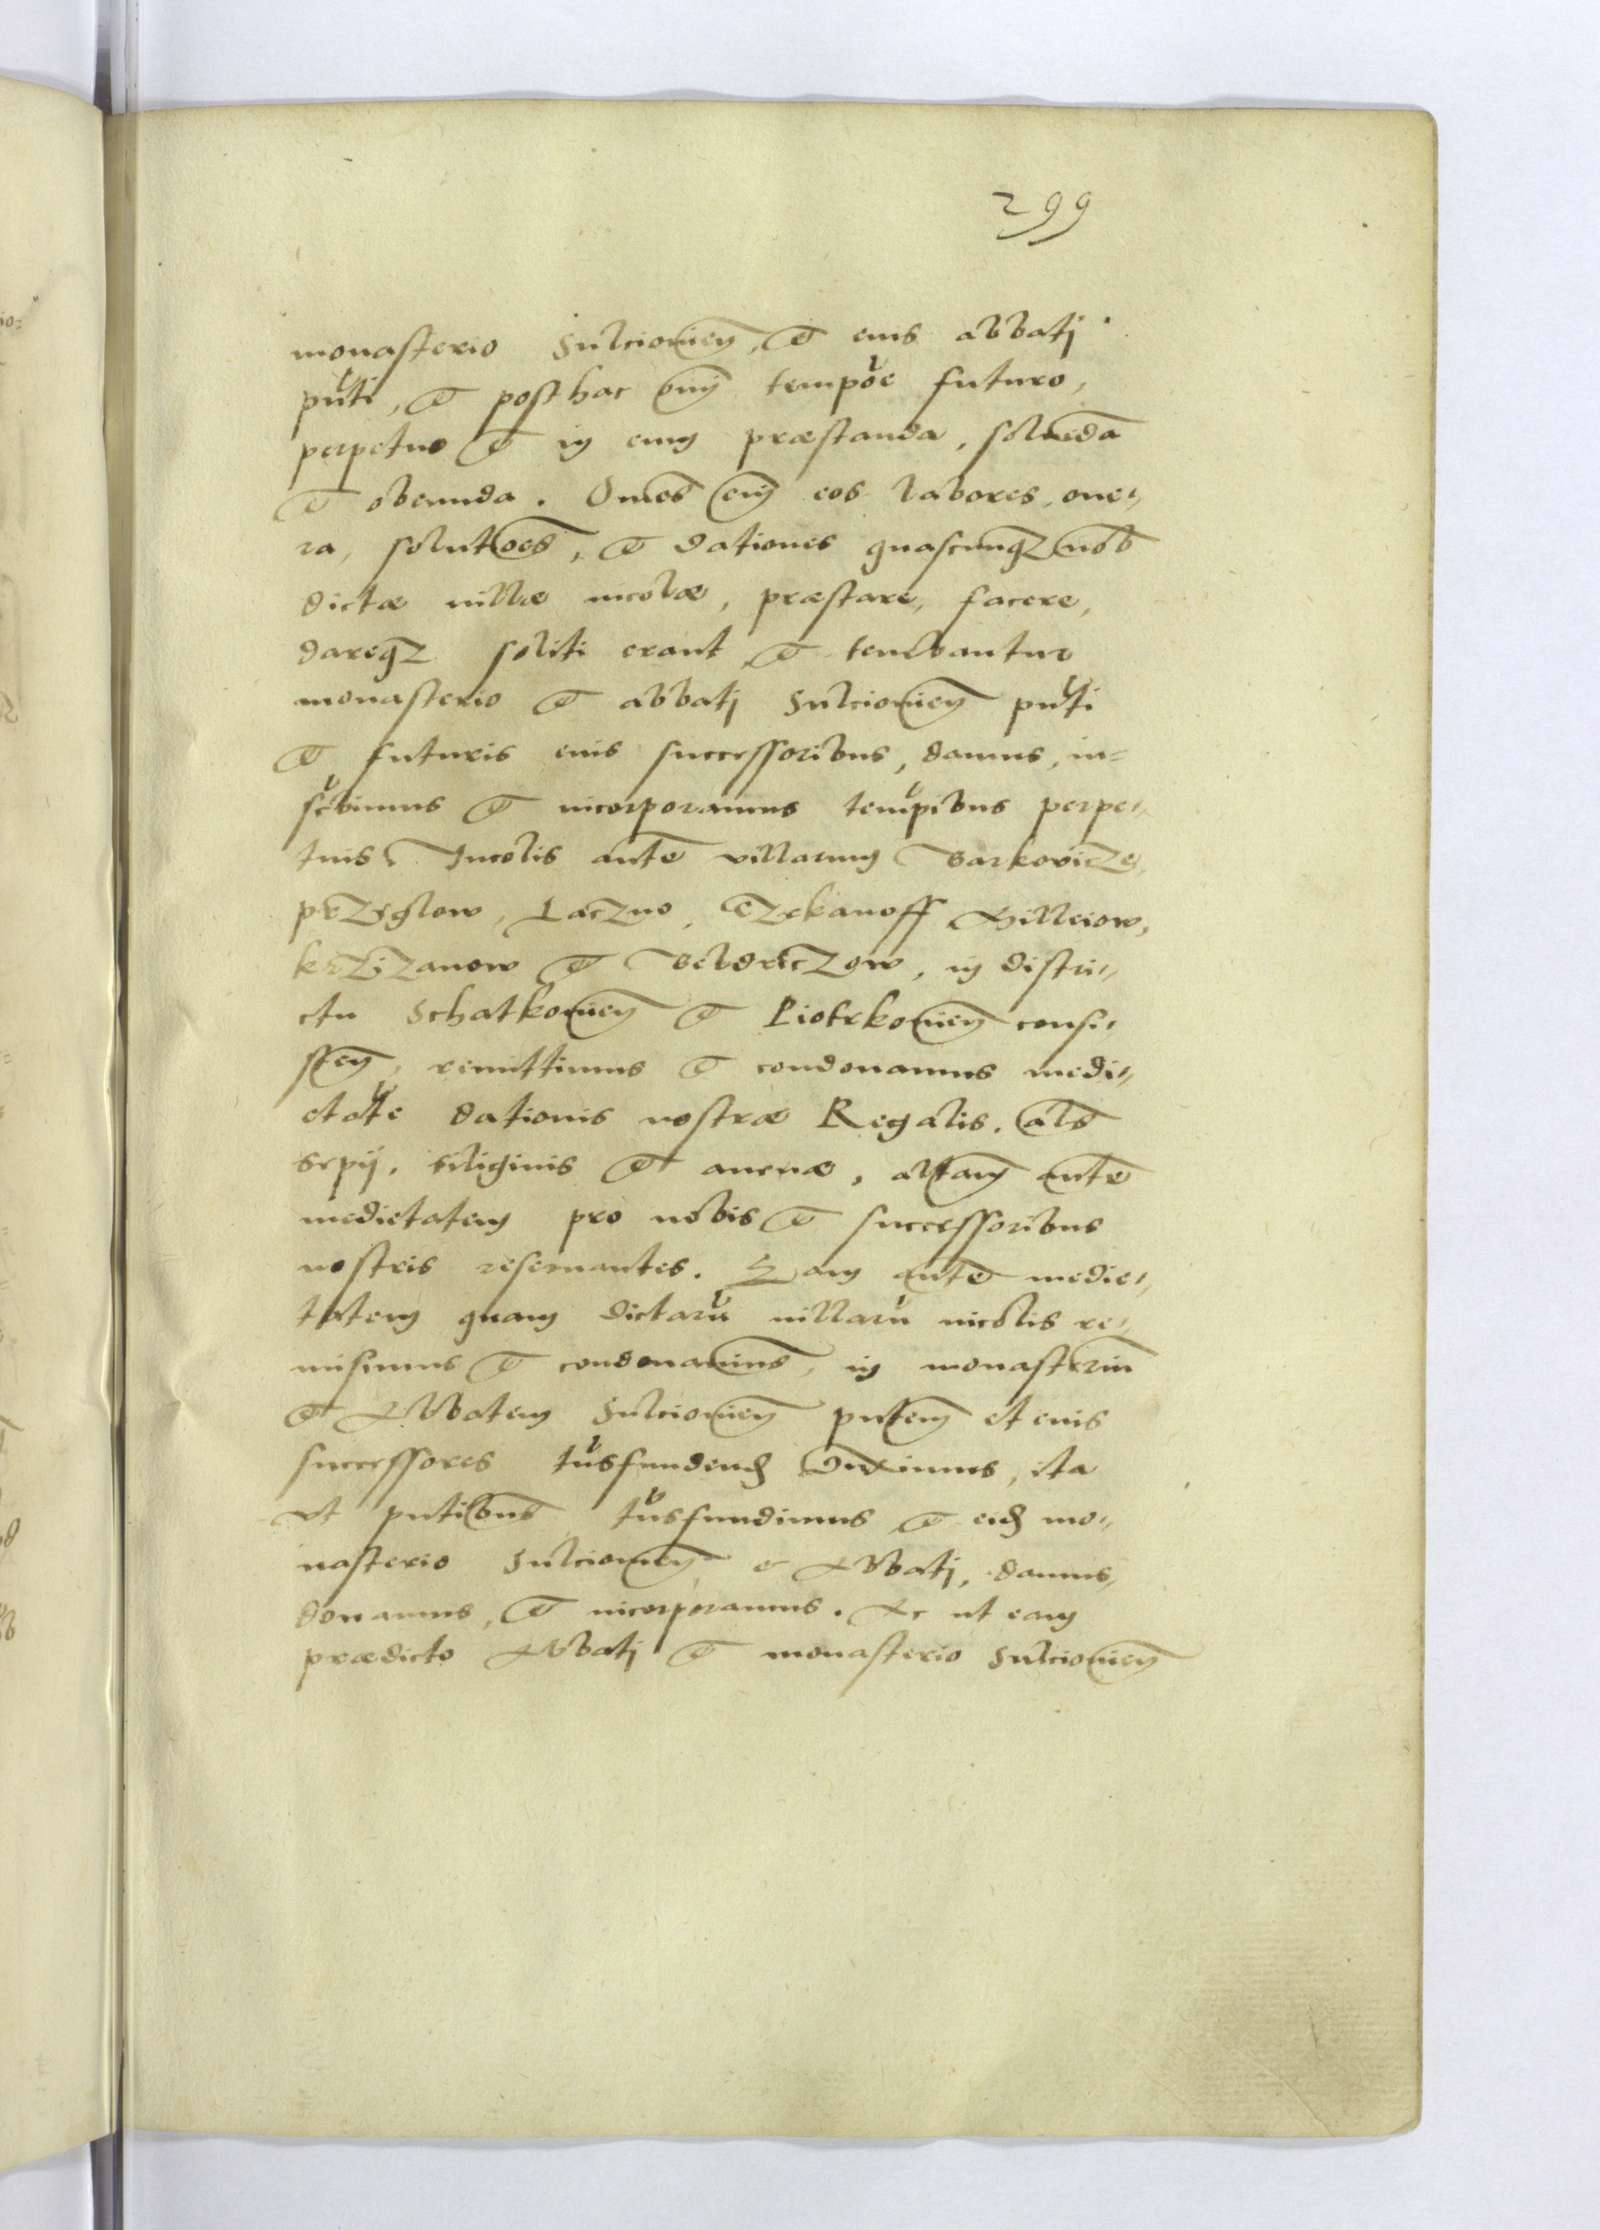 299
monasterio Sulciouien, et eius abbati
pnti, et posthac omni tempore futuro,
perpetuo et in eum præstanda, soluēda
et obeunda. Omēs em eos labores, one-
ra, solutoēs, et dationes quascunqz nob
dictæ uillæ incolæ, præstare, facere,
dareqz soliti erant et tenebantur
monasterio et abbati Sulciouien pnti
et futuris eius successoribus, damus, in=
scbimus et incorporamus tempibus perpe-
tuis. Incolis aute villarum Barkovicze
przyglow, Łaczno, Czekanoff Willciow,
krzizanow et Beldrczow, in distri-
ctu Schatkouien et Piotrkouien consi-
sten, remittimus et condonamus medi-
etate dationis nostræ Regalis. als
Sepij, siliginis et auenæ, altam aute
medietatem pro nobis et successoribus
nostris reseruantes. Eam aute medie-
tatem quam dictaru uillaru incolis re-
misimus et condonauims, in monasteriu
et Abbatem Sulciouien pntem et eius
successores tnsfundend duximus, ita
vt pntibus tnsfundimus et eid mo-
nasterio Sulciouien et Abbati, damus,
donamus, et incorporamus. Ac ut eam
prædicto Abbati et monasterio Sulciouien